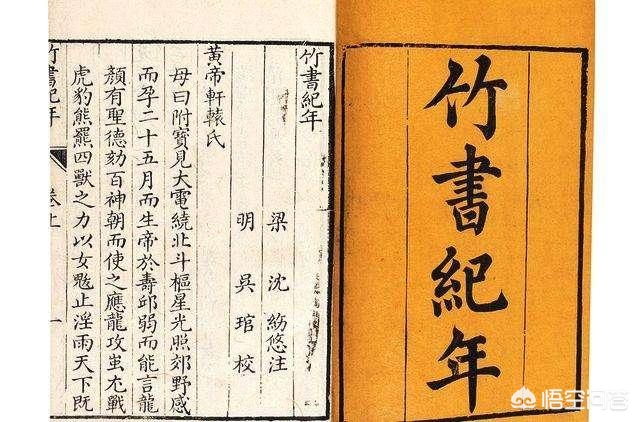 竹書紀年
竹書紀年
梁 沈 約 注
明 吳 琯 校
黃帝軒轅氏
母曰附寶見大電繞北斗樞星光照郊野感
而孕二十五月而生帝於壽邱弱而能言龍
顏有聖德劾百神朝而使之應龍攻蚩尤戰
虎豹熊羆四獸之力以女魃止淫雨天下既
竹書紀年 卷上 一
悟空问答